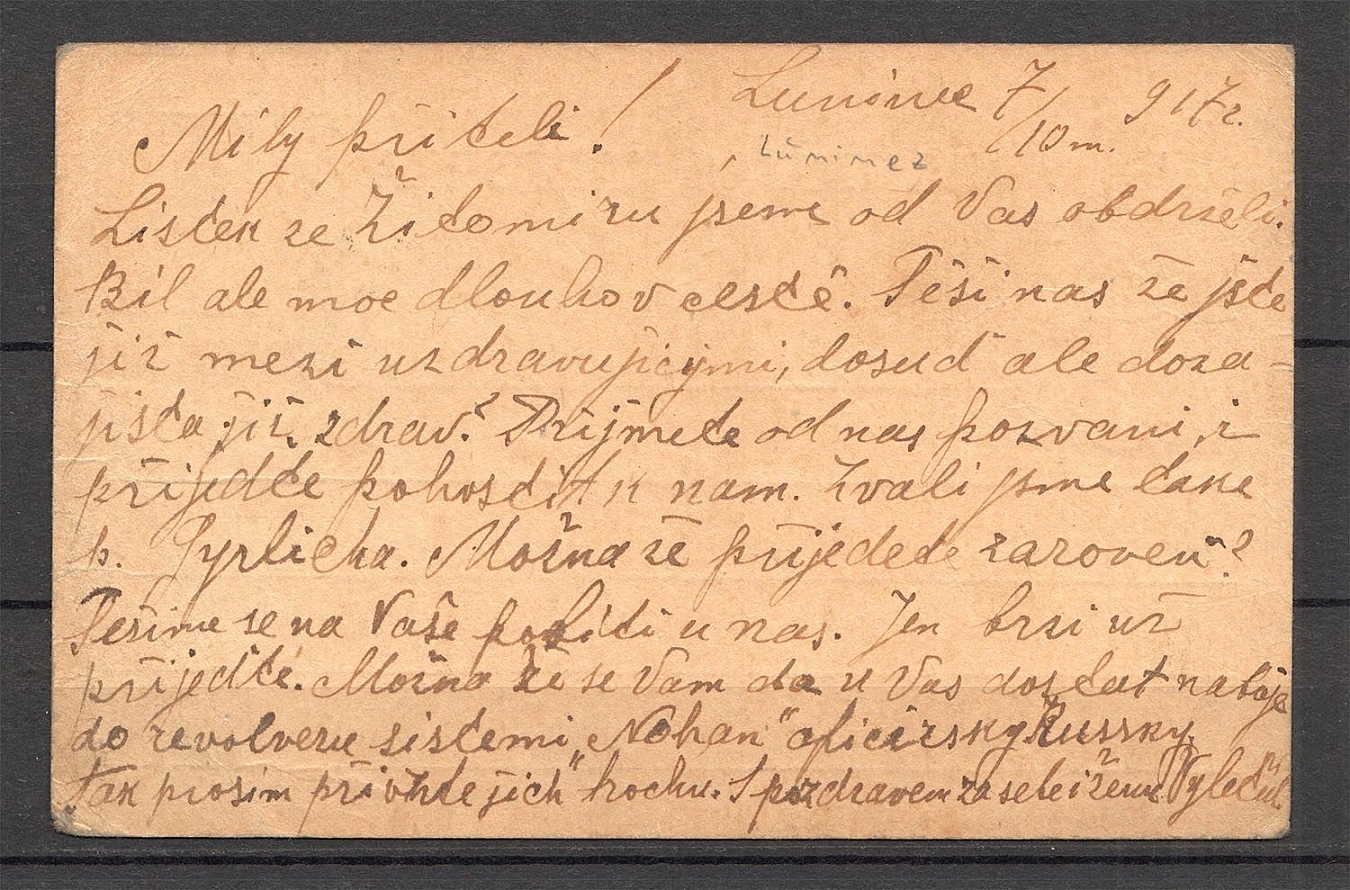 Luninec 7/10 m. 917 r.
Milý příteli!
Lůninez
Lístek ze Žitomiru jsme od Vas obdrželi.
Bil ale moc dlouho v cestě. Těší nas že jste
již mezi uzdravujícými, dosud ale doza-
jista již zdrav? Přijmete od nas pozvani, i
přijedťe pohostit k nam. Zvali jsme take
p. Gyrlicha. Možna že přijedete zaroveň?
Těšime se na Vaše pobiti u nas. Jen brsi už
přijedťe. Možna že se Vam da u Vas dostat naboje
do revolveru sistemi „Nohan" oficirsky Russky,
tak prosim přivhte jich hochu. S pozdravem za sebe i ženu